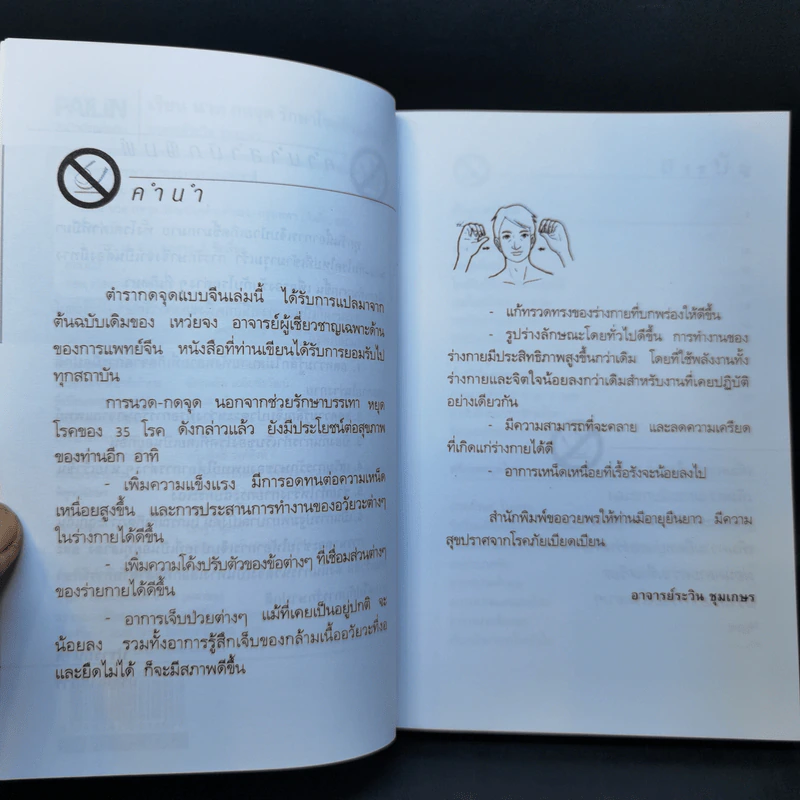 คำนำ
ตำรากดจุดแบบจีนเล่มนี้ ได้รับการแปลมาจาก
ต้นฉบับเดิมของ เหว่ยจง อาจารย์ผู้เชี่ยวชาญเฉพาะด้าน
ของการแพทย์จีน หนังสือที่ท่านเขียนได้รับการยอมรับไป
ทุกสถาบัน
การนวด-กดจุด นอกจากช่วยรักษาบรรเทา หยุด
โรคของ 35 โรค ดังกล่าวแล้ว ยังมีประโยชน์ต่อสุขภาพ
ของท่านอีก อาทิ
- เพิ่มความแข็งแรง มีการอดทนต่อความเหน็ด
เหนื่อยสูงขึ้น และการประสานการทำงานของอวัยวะต่างๆ
ในร่างกายได้ดีขึ้น
- เพิ่มความโค้งปรับตัวของข้อต่างๆ ที่เชื่อมส่วนต่างๆ
ของร่ายกายได้ดีขึ้น
- อาการเจ็บป่วยต่างๆ แม้ที่เคยเป็นอยู่ปกติ จะ
น้อยลง รวมทั้งอาการรู้สึกเจ็บของกล้ามเนื้ออวัยวะที่งอ
และยืดไม่ได้ ก็จะมีสภาพดีขึ้น
- แก้ทรวดทรงของร่างกายที่บกพร่องให้ดีขึ้น
- รูปร่างลักษณะโดยทั่วไปดีขึ้น การทำงานของ
ร่างกายมีประสิทธิภาพสูงขึ้นกว่าเดิม โดยที่ใช้พลังงานทั้ง
ร่างกายและจิตใจน้อยลงกว่าเดิมสำหรับงานที่เคยปฏิบัติ
อย่างเดียวกัน
- มีความสามารถที่จะคลาย และลดความเครียด
ที่เกิดแก่ร่างกายได้ดี
- อาการเหน็ดเหนื่อยที่เรื้อรังจะน้อยลงไป
สำนักพิมพ์ขออวยพรให้ท่านมีอายุยืนยาว มีความ
สุขปราศจากโรคภัยเบียดเบียน
อาจารย์ระวิน ชุมเกษร